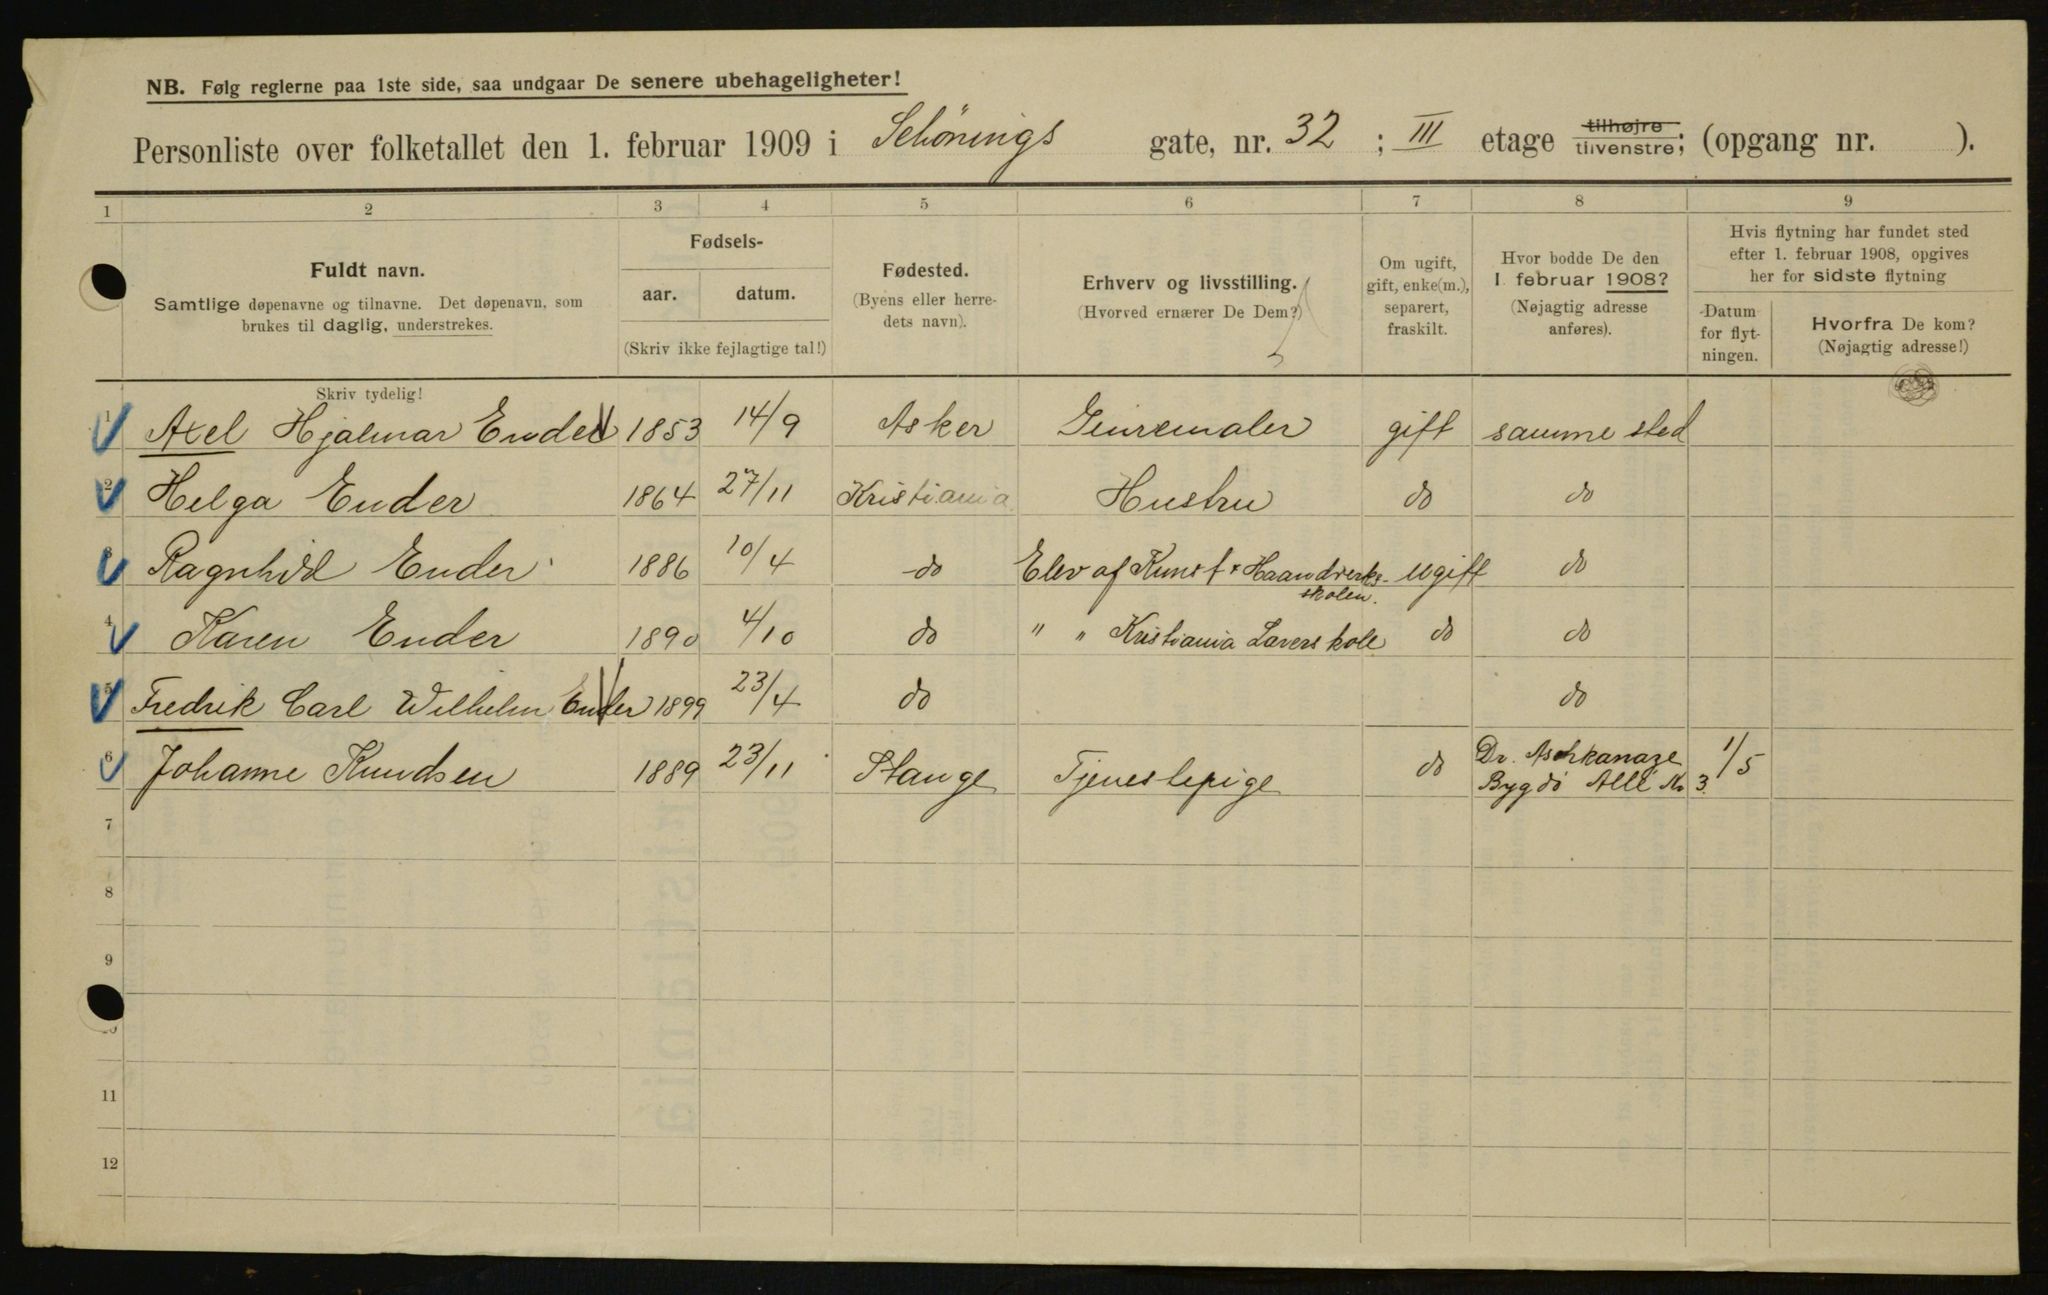 NB. Følg reglerne paa 1ste side, saa undgaar De senere ubehageligheter!
Personliste over folketallet den 1. februar 1909 i Schönings gate, nr. 32 ; III etage tilhøjre tilvenstre; (opgang nr. ).
1 2 3 4 5 6 7 8 9
Fuldt navn.
Samtlige døpenavne og tilnavne. Det døpenavn, som
brukes til daglig, understrekes.
Fødsels-
aar. datum.
(Skriv ikke fejlagtige tal!)
Fødested.
(Byens eller herre-
dets navn).
Erhverv og livsstilling.
(Hvorved ernærer De Dem?)
Om ugift,
gift, enke(m.),
separert,
fraskilt.
Hvor bodde De den
1. februar 1908?
(Nøjagtig adresse
anføres).
Hvis flytning har fundet sted
efter 1. februar 1908, opgives
her for sidste flytning
Datum
for flyt-
ningen.
Hvorfra De kom?
(Nøjagtig adresse!)
Skriv tydelig!
1 Axel Hjalmar Ender 1853 14/9 Asker Genremaler gift samme sted
2 Helga Ender 1864 27/11 Kristiania Hustru do do
3 Ragnhild Ender 1886 10/4 do Elev af Kunst & Haandverks- ugift do
skolen.
4 Karen Ender 1890 4/10 do " " Kristiania Lærerskole do do
5 Fredrik Carl Wilhelm Ender 1899 23/4 do do
6 Johanne Knudsen 1889 23/11 Stange Tjenestepige do Dr. Aschkanaze 1/5
Bygdö Allé No 3.
7
8
9
10
11
12